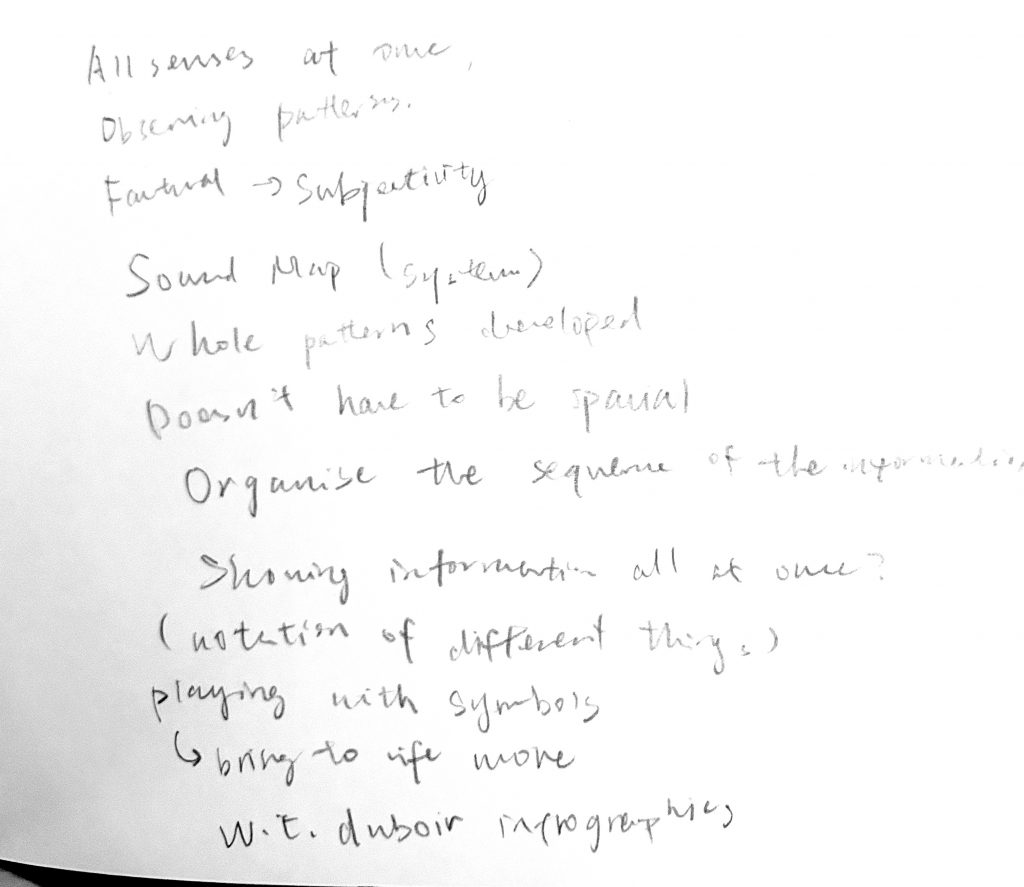 All senses at once,
Observing patterns.
Factual → Subjectivity
Sound Map (system)
Whole patterns developed
Doesn't have to be spatial
Organise the sequence of the information
Showing information all at once?
(notation of different things)
playing with symbols
↳ bring to life more
W.E. duboir infographics